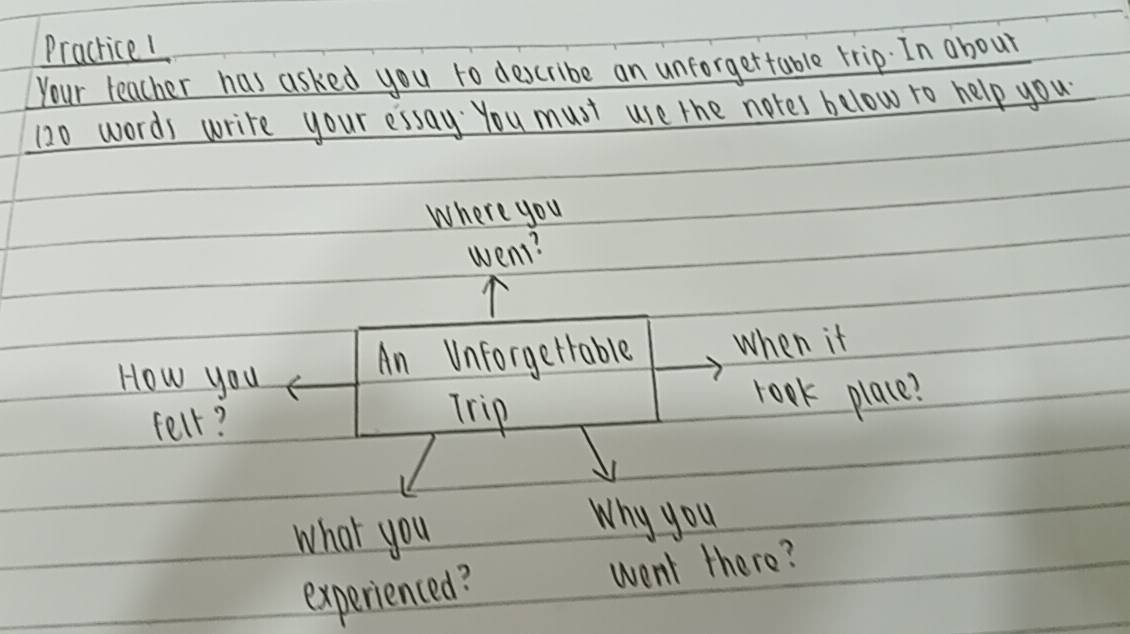 Practice 1
Your teacher has asked you to describe an unforgettable trip. In about
120 words write your essay. You must use the notes below to help you.
Where you
went?
An Unforgettable
Trip
When it
took place?
How you
felt?
What you
experienced?
Why you
went there?